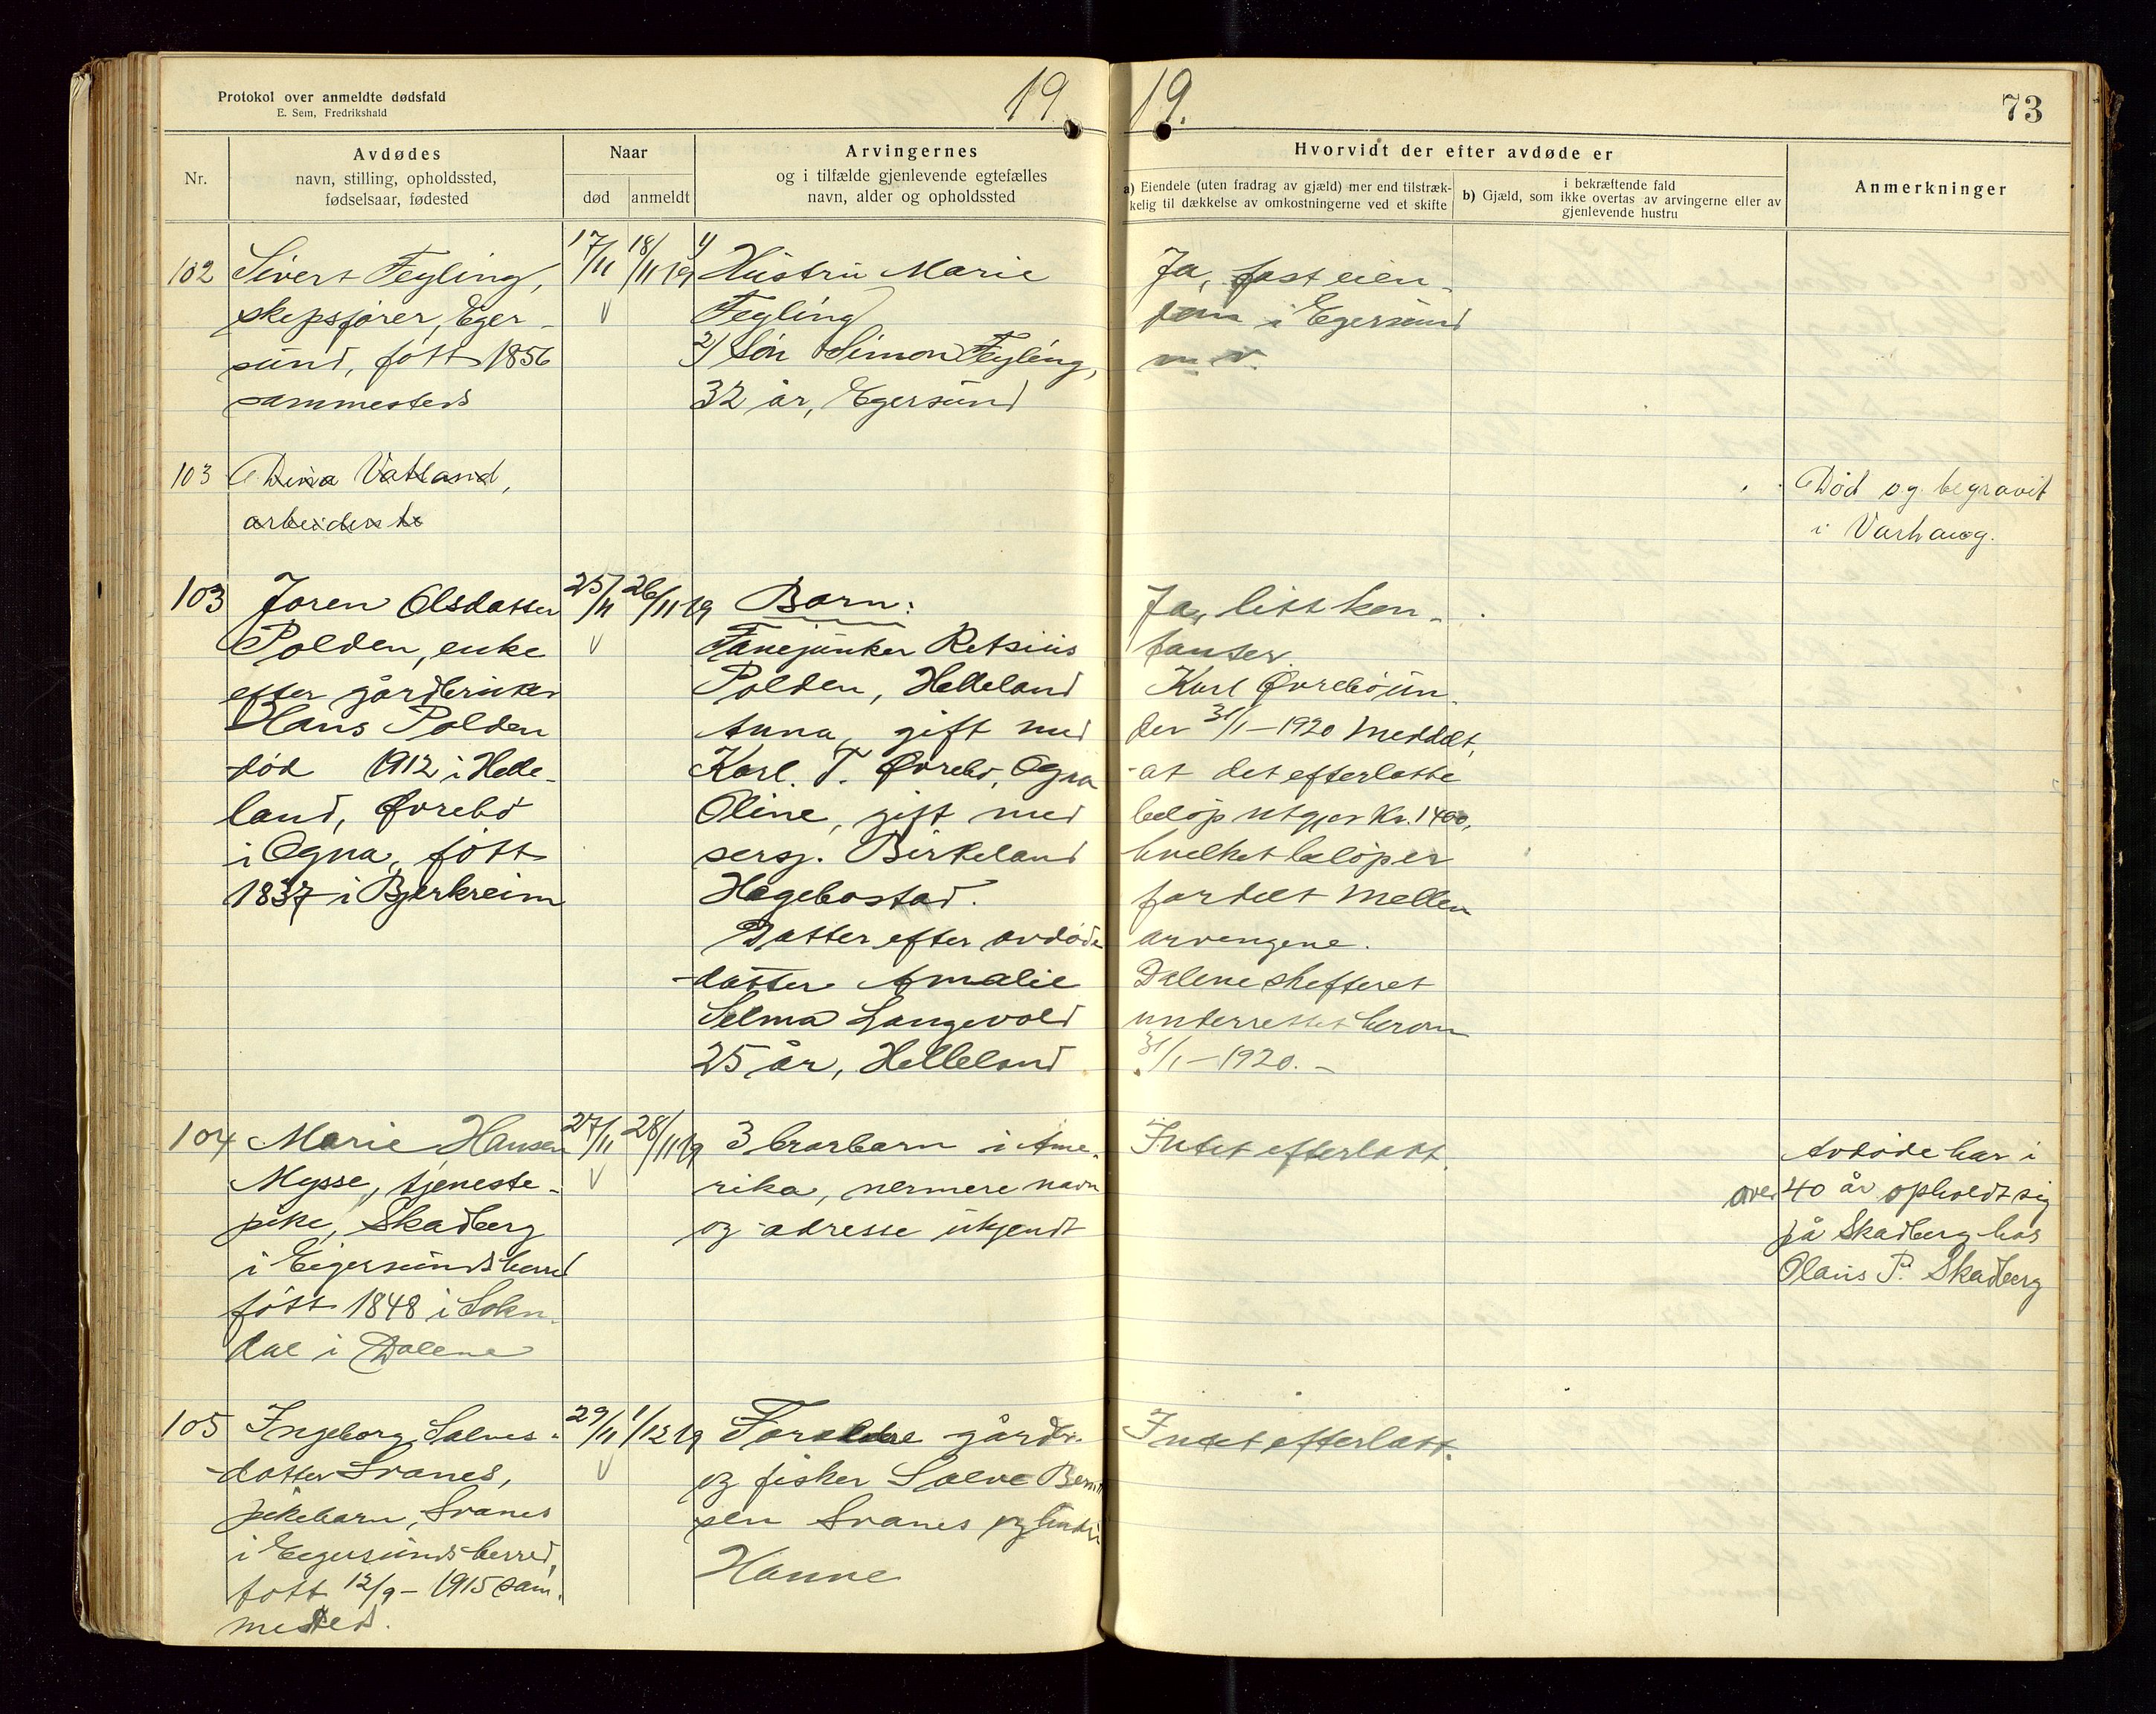 Protokol over anmeldte dødsfald
E. Sem, Fredrikshald
19
19.
73
Nr.
Avdødes
navn, stilling, opholdssted,
fødselsaar, fødested
Naar
død
anmeldt
Arvingernes
og i tilfælde gjenlevende egtefælles
navn, alder og opholdssted
Hvorvidt der efter avdøde er
a) Eiendele (uten fradrag av gjæld) mer end tilstræk-
kelig til dækkelse av omkostningerne ved et skifte
i bekræftende fald
b) Gjæld, som ikke overtas av arvingerne eller av
gjenlevende hustru
Anmerkninger
102
Sivert Feyling,
skipsfører, Eger-
sund, født 1856
sammesteds
17/11
18/11 19
1) Hustru Marie
Feyling
2) Søn Simon Feyling,
32 år, Egersund
Ja, fast eien-
dom i Egersund
m. v.
103
Dina Vatland,
arbeiderske
Død og begravit
i Varhaug.
103
Joren Olsdatter
Polden, enke
efter gårdbruker
Hans Polden
død 1912 i Helle-
land, Øvrebø
i Ogna, født
1837 i Bjerkreim
25/11
26/11 19
Barn:
Fanejunker Retsius
Polden, Helleland
Anna, gift med
Karl T. Øvrebø, Ogna
Oline, gift med
sersj. Birkeland
Hægebostad.
Datter efter avdøde
datter Amalie
Selma Langevold
25 år, Helleland
Ja, litt kon-
tanter.
Karl Øvrebø un-
der 31/1 - 1920 meddelt,
at det efterlatte
beløp utgjør Kr. 1400,
hvilket beløp er
fordelt mellem
arvingene.
Dalene skifteret
underrettet herom
31/1 - 1920. -
104
Marie Hansen
Mysse, tjeneste-
pike, Skadberg
i Eigersunds herred
født 1848 i Sokn-
dal i Dalene
27/11
28/11 19
3 brorbarn i Ame-
rika, nermere navn
og adresse ukjendt
Intet efterlatt.
Avdøde har i
over 40 år opholdt sig
på Skadberg hos
Olaus P. Skadberg
105
Ingeborg Salves-
datter Svanes,
pikebarn, Svanes
i Eigersunds herred,
født 12/9 - 1915 sam-
mested.
29/11
1/12 19
Forældre gårdbr.
og fisker Salve
sen Svanes og hustru
Hanne
Intet efterlatt.